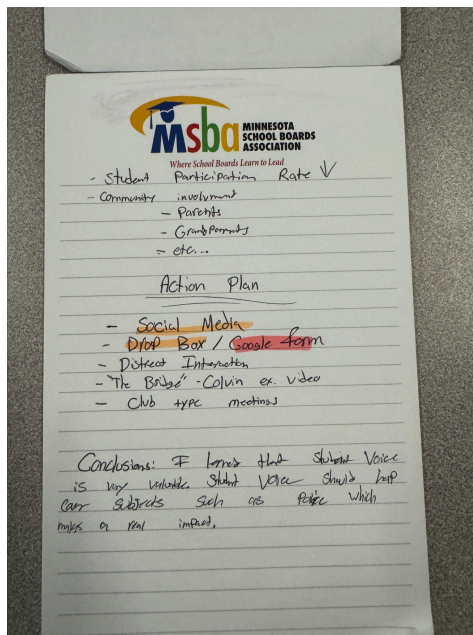 msba MINNESOTA
SCHOOL BOARDS
ASSOCIATION
Where School Boards Learn to Lead
- Student Participation Rate ↓
- Community involvment
- Parents
- GrandParents
- etc...
Action Plan
- Social Media
- Drop Box / Google form
- District Interaction
- "The Bridge" - Colvin ex. video
- Club type meetings
Conclusions: I that Student Voice
is very valuable. Student Voice should
subjects such as which
makes a real impact.